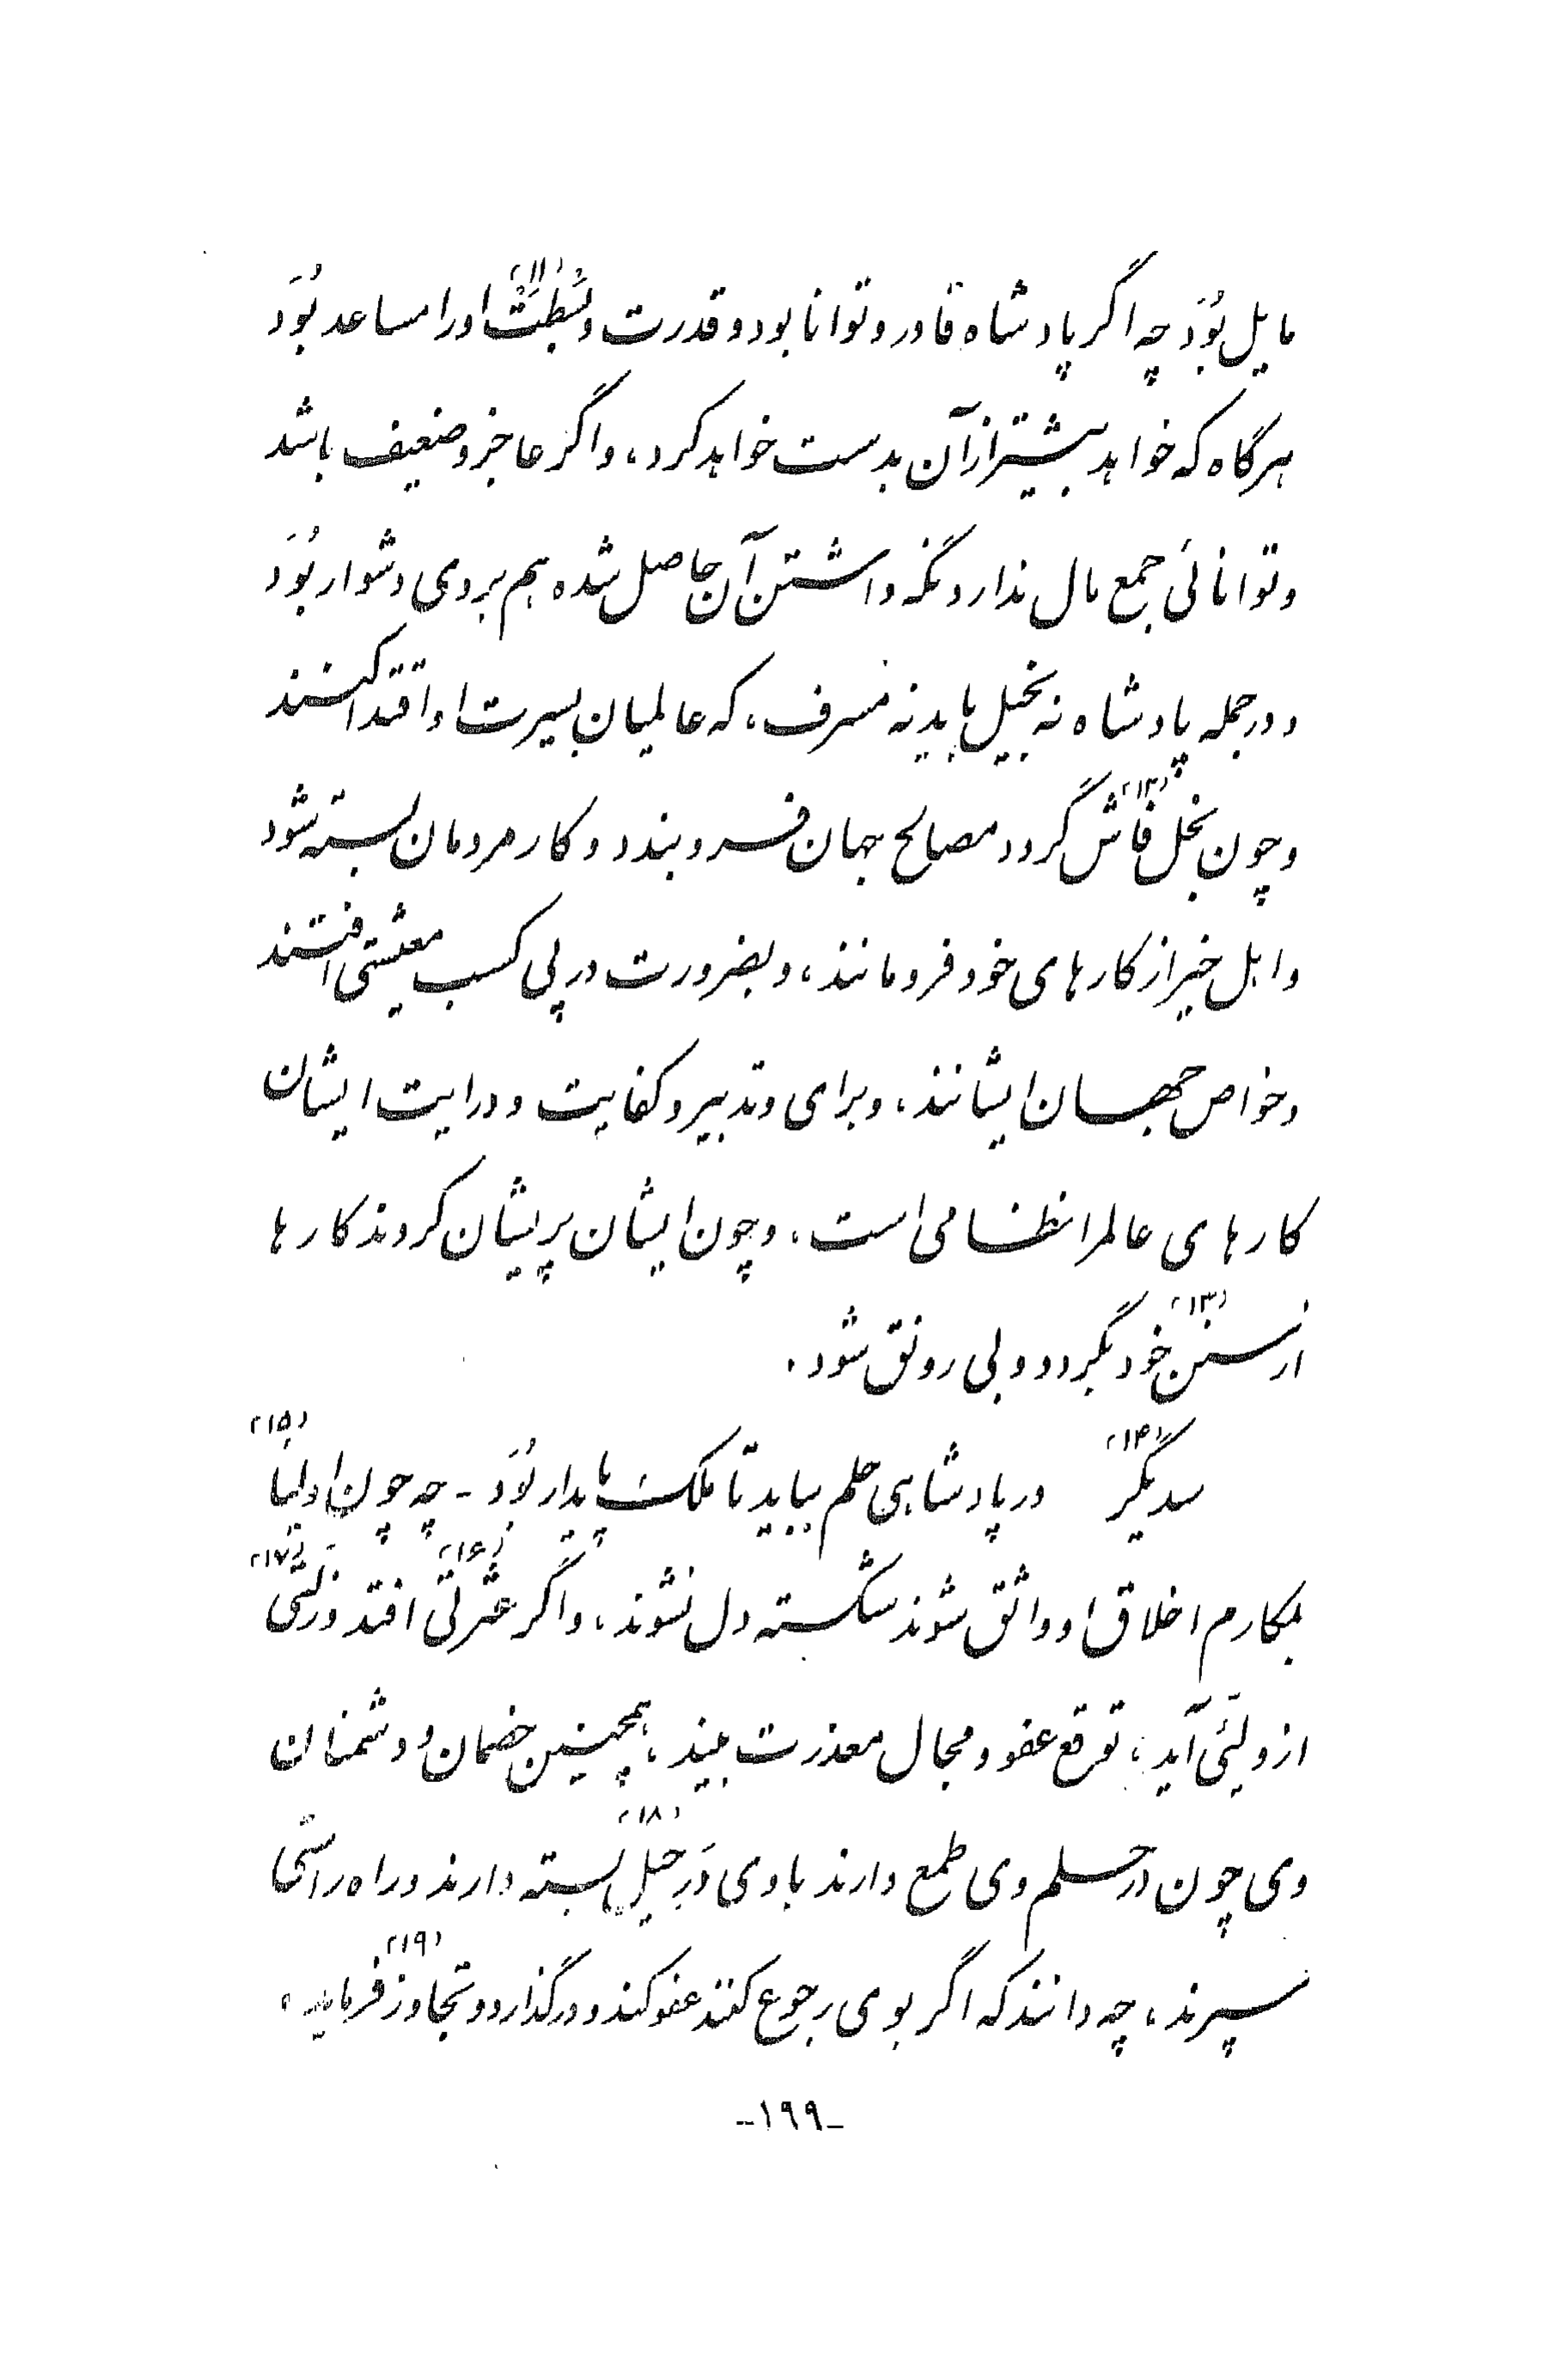 مایل بُوَد چه اگر پادشاه قادر و توانا بود و قدرت و بَسْطَتْ (۱۱) او را مساعد بُوَد
هرگاه که خواهد بیشتر از آن بدست خواهد کرد، و اگر عاجز و ضعیف باشد
و توانائی جمع مال ندارد نگه داشتن آن حاصل شده هم بر وی دشوار بُوَد
و در جمله پادشاه نه بخیل باید نه مسرف، که عالمیان بسیرت او اقتدا کنند
و چون بخل فاش (۱۲) گردد مصالح جهان فرو بندد و کار مردمان بسته شود
و اهل خیر از کارهای خود فرو مانند، و بضرورت در پی کسب معیشتی افتند
و خواص جهان ایشانند، و برای و تدبیر و کفایت و درایت ایشان
کارهای عالم را نظامی است، و چون ایشان پریشان گردند کارها
از سنن (۱۳) خود بگردد و بی رونق شود.
سدیگر (۱۴) در پادشاهی حلم بباید تا ملک پایدار بُوَد - چه چون اولیا (۱۵)
بمکارم اخلاق او واثق شوند شکسته دل نشوند، و اگر عثرتی (۱۶) افتد و زَلَّتی (۱۷)
از ولیّی آید، توقع عفو و مجال معذرت بیند، همچنین خصمان و دشمنان
وی چون در حلم وی طمع دارند با وی دَرِ حِیَل (۱۸) بسته دارند و راه راستی
سپرند، چه دانند که اگر بوی رجوع کنند عفو کند و درگذارد و تجاوز (۱۹) فرماید،
-۱۹۹-